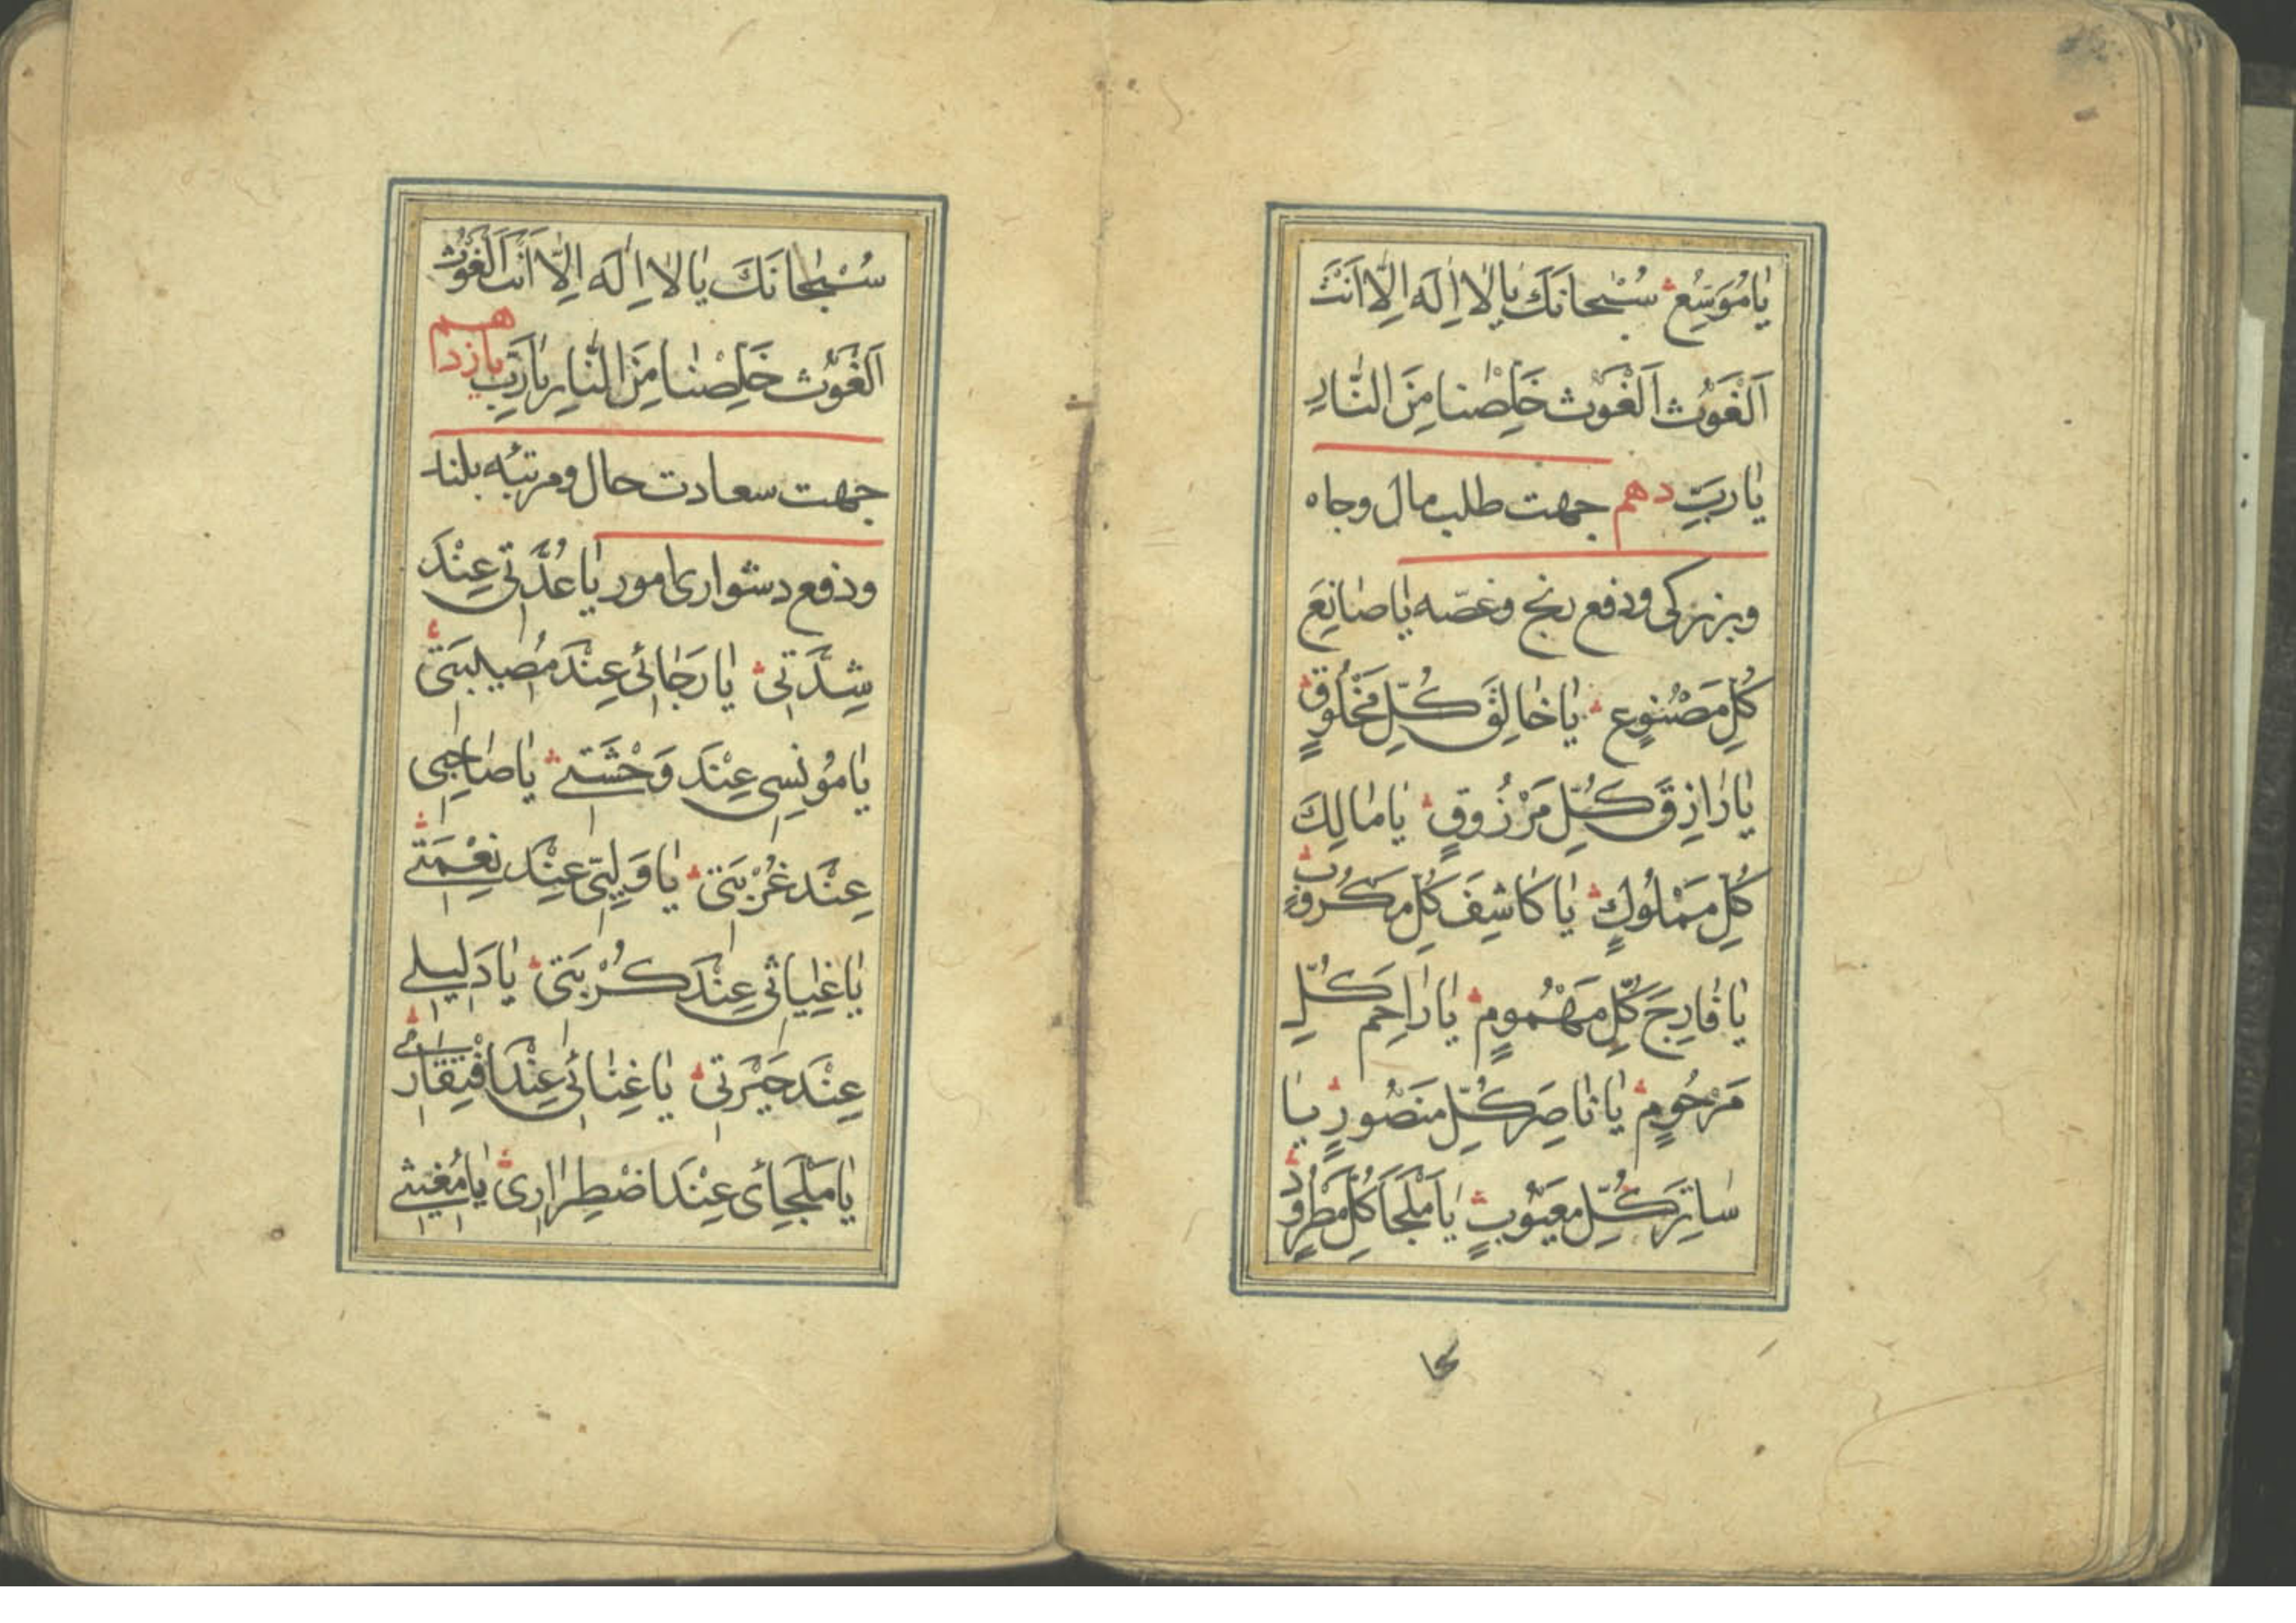 يا مُوَسِّعُ سُبْحانَكَ يا لا اِلَهَ اِلّا اَنْتَ
اَلْغَوْث اَلْغَوْث خَلِّصْنا مِنَ النّارِ
يا رَبِّ دهم جهت طلب مال و جاه
و بزرکی و دفع رنج و غصّه يا صانِعَ
كُلِّ مَصْنُوعٍ يا خالِقَ كُلِّ مَخْلُوقٍ
يا رازِقَ كُلِّ مَرْزُوقٍ يا مالِكَ
كُلِّ مَمْلُوكٍ يا كاشِفَ كُلِّ مَكْرُوبٍ
يا فارِجَ كُلِّ مَهْمُومٍ يا راحِمَ كُلِّ
مَرْحُومٍ يا ناصِرَ كُلِّ مَنْصُورٍ يا
ساتِرَ كُلِّ مَعْيُوبٍ يا مَلْجَأَ كُلِّ مَطْرُودٍ
سُبْحانَكَ يا لا اِلَهَ اِلّا اَنْتَ اَلْغَوْث
اَلْغَوْث خَلِّصْنا مِنَ النّارِ يا رَبِّ يازدهم
جهت سعادت حال و مرتبه بلند
و دفع دشواری امور يا عُدَّتي عِنْدَ
شِدَّتي يا رَجائي عِنْدَ مُصيبَتي
يا مُونِسي عِنْدَ وَحْشَتي يا صاحِبي
عِنْدَ غُرْبَتي يا وَلِيّي عِنْدَ نِعْمَتي
يا غِياثي عِنْدَ كُرْبَتي يا دَليلي
عِنْدَ حَيْرَتي يا غِنائي عِنْدَ افْتِقاري
يا مَلْجَائي عِنْدَ اضْطِراري يا مُغيثي